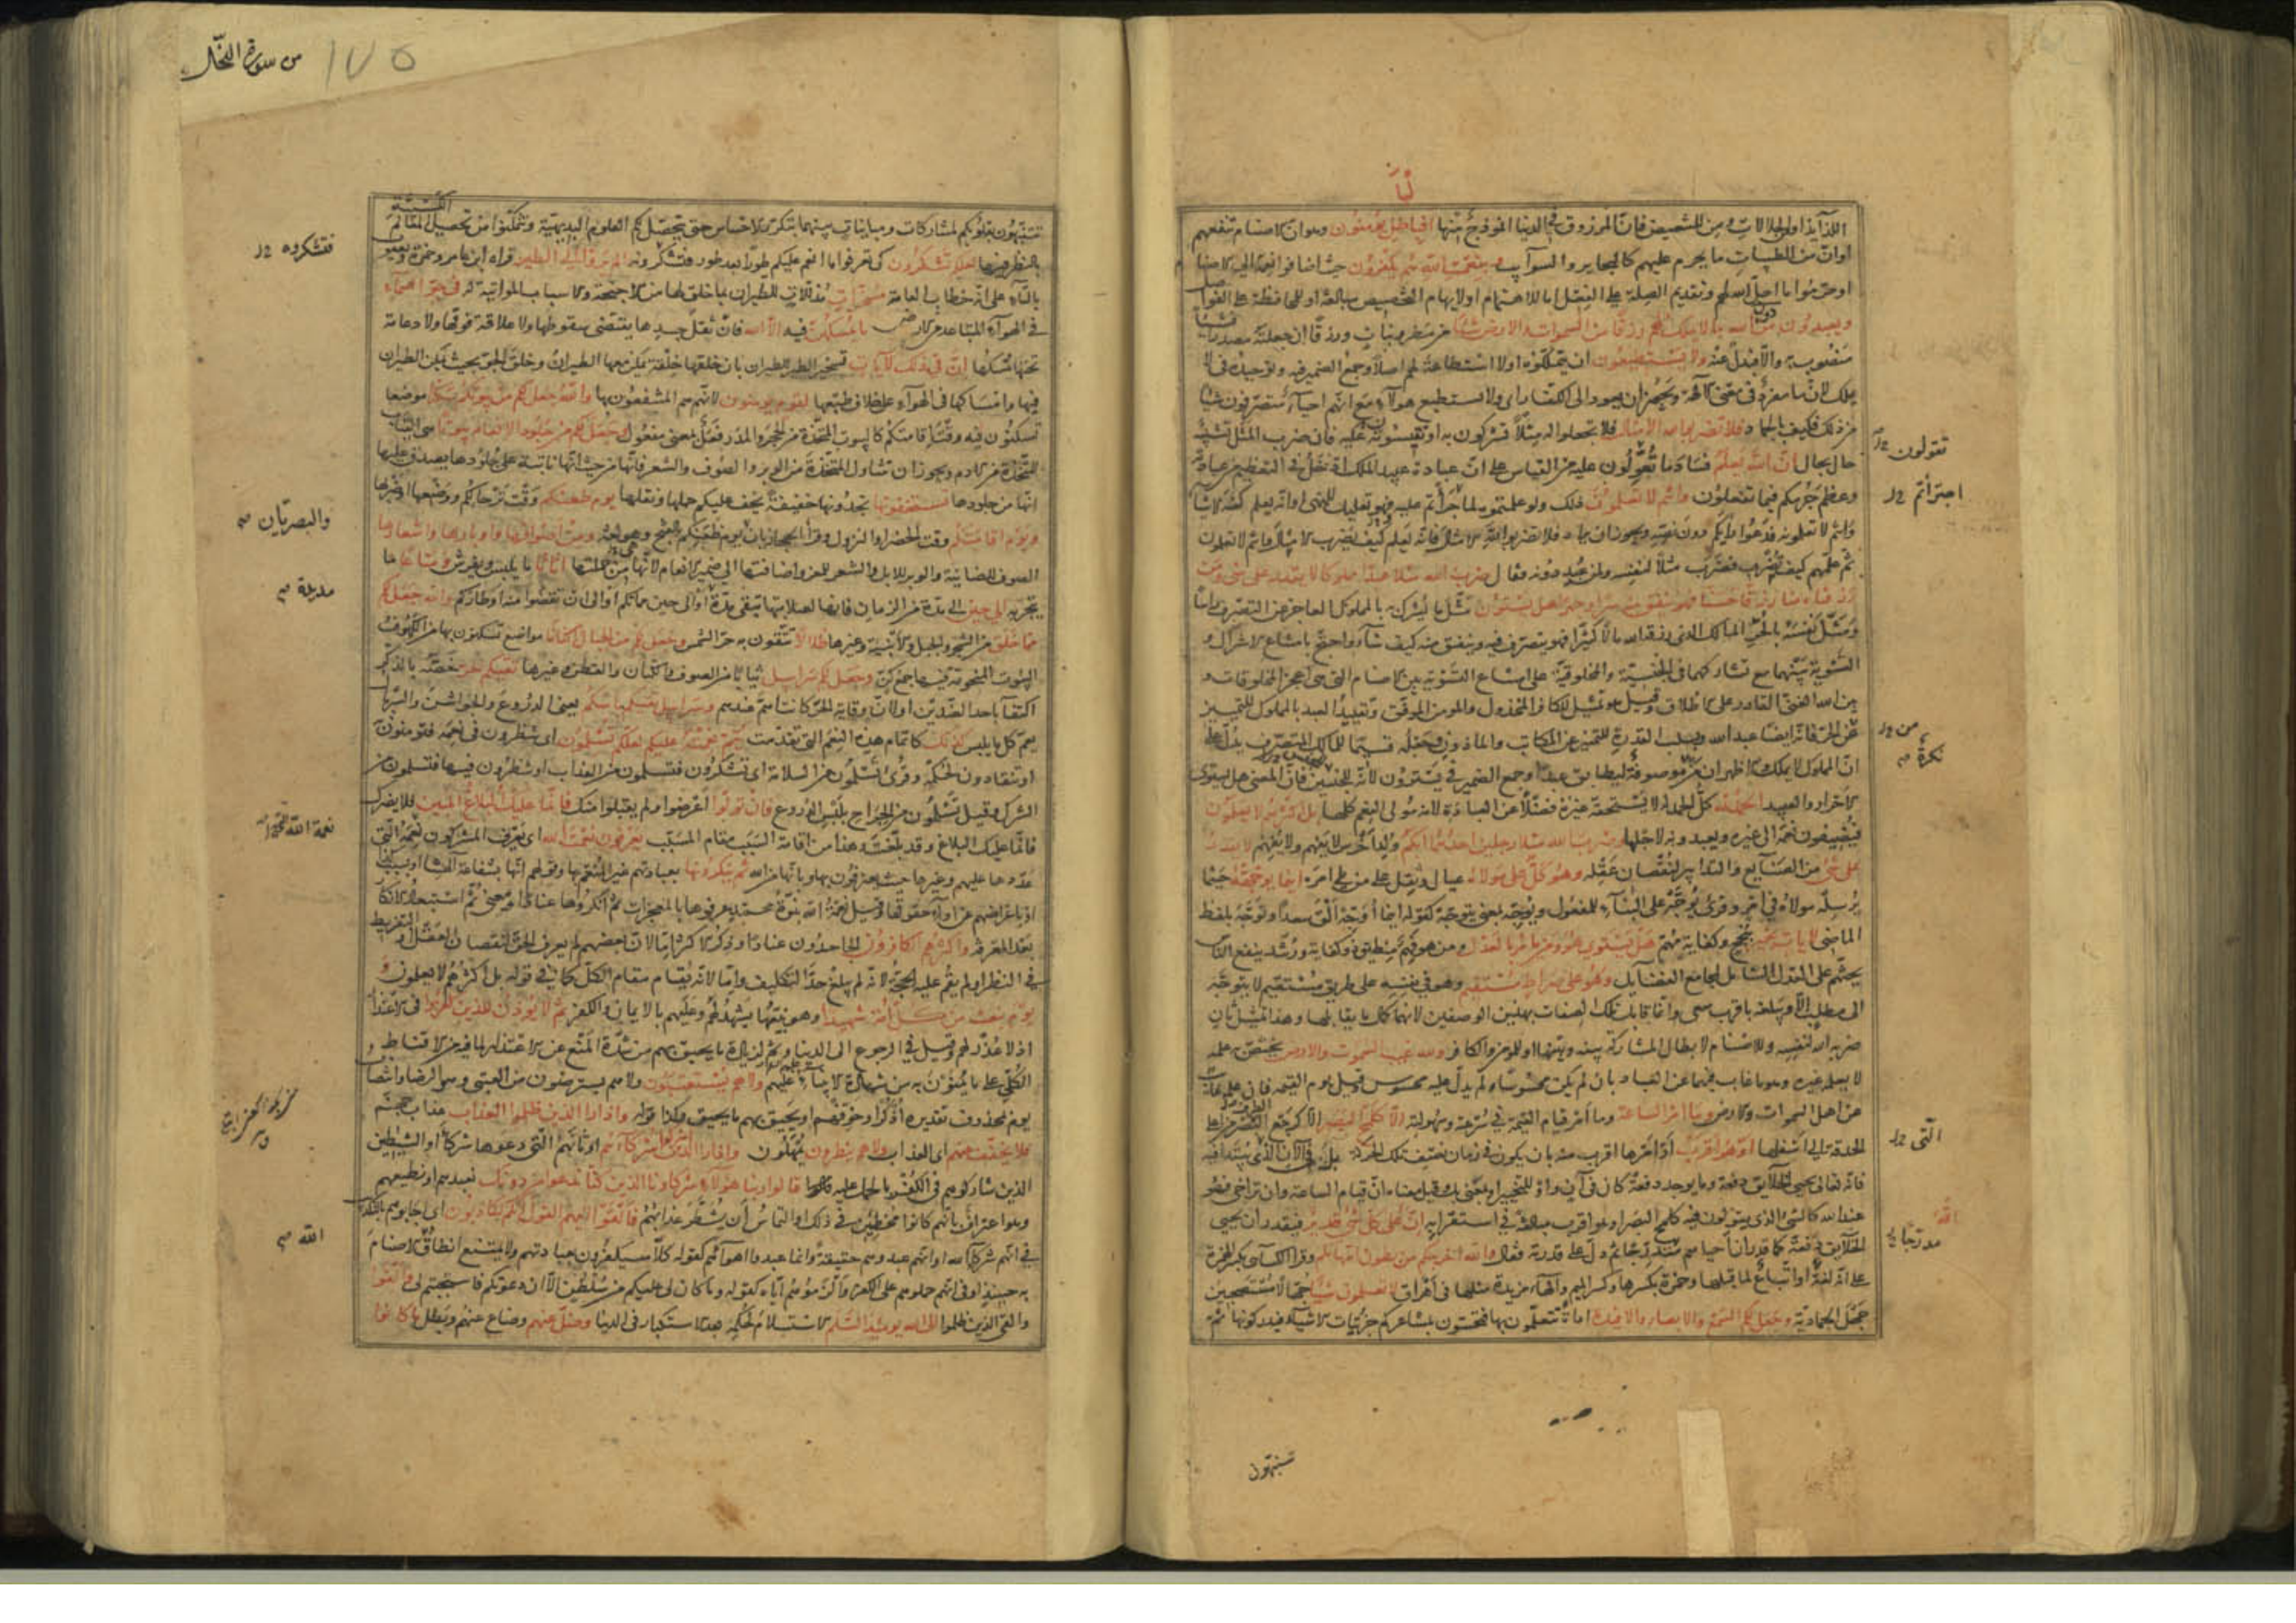 اللذايذ او الحلالات ومن للتبعيض فان المرزوق في الدنيا انموذج منها افبالباطل يؤمنون وهو ان الاصنام تنفعهم
او ان من الطيبات ما يحرم عليهم كالبحاير والسوآيب وبنعمت الله هم يكفرون حيث اضافوا نعمه الى الاصنام
او حرموا ما احل الله لهم وتقديم الصلة على الفعل اما للاهتمام او لايهام التخصيص مبالغة او للمحافظة على الفواصل
ويعبدون من دون الله ما لا يملك لهم رزقا من السموات والارض شيئا من مطر ونبات ورزقا ان جعلته مصدرا فشيئا
منصوب به والا فبدل عنه ولا يستطيعون ان يتملكوه او لا استطاعة لهم اصلا وجمع الضمير فيه وتوحيده في لا
يملك لان ما مفرد في معنى الآلهة ويجوز ان يعود الى الكفار اى ولا يستطيع هولاء مع انهم احياء متصرفون شيئا
من ذلك فكيف بالجماد فلا تضربوا لله الامثال فلا تجعلوا له مثلا تشركون به او تقيسونه عليه فان ضرب المثل تشبيه
حال بحال ان الله يعلم فساد ما تعولون عليه من القياس على ان عبادة عبيد الملك ادخل في التعظيم من عبادته
وعظم جرمكم فيما تفعلون وانتم لا تعلمون ذلك ولو علمتموه لما جرأتم عليه فهو تعليل للنهى او انه يعلم كنه الاشيا
وانتم لا تعلمونه فدعوا رأيكم دون نصه ويجوز ان يراد فلا تضربوا لله الامثال فانه يعلم كيف يضرب الامثال وانتم لا تعلمون
ثم علمهم كيف يضرب فضرب مثلا لنفسه ولمن عبد دونه فقال ضرب الله مثلا عبدا مملوكا لا يقدر على شئ ومن
رزقناه منا رزقا حسنا فهو ينفق منه سرا وجهرا هل يستوون مثل ما يشرك به بالمملوك العاجز عن التصرف راسا
ومثل نفسه بالحر المالك الذى رزقه الله مالا كثيرا فهو يتصرف فيه وينفق منه كيف شآء واحتج بامتناع الاشراك و
التسوية بينهما مع تشاركهما في الجنسية والمخلوقية على امتناع التسوية بين الاصنام التى هى اعجز المخلوقات و
بين الله الغنى القادر على الاطلاق وقيل هو تمثيل للكافر المخذول والمومن الموفق وتقييد العبد بالمملوك للتمييز
عن الحر فانه ايضا عبد الله وبسلب القدرة للتمييز عن المكاتب والماذون وجعله قسيما للمالك المتصرف يدل على
ان المملوك لا يملك والاظهر ان من موصوفة ليطابق عبدا وجمع الضمير في يستوون لانه للجنسين فان المعنى هل يستوى
الاحرار والعبيد الحمد لله كل الحمد له لا يستحقه غيره فضلا عن العبادة لانه مولى النعم كلها بل اكثرهم لا يعلمون
فيضيفون نعمه الى غيره ويعبدونه لاجلها وضرب الله مثلا رجلين احدهما ابكم ولد اخرس لا يفهم ولا يفهم لا يقدر
على شئ من الصنآيع والتدابير لنقصان عقله وهو كل على موليه عيال وثقل على من يلى امره اينما يوجهه حيثما
يرسله مولاه في امر وقرئ يوجه على البنآء للمفعول ويوجه بمعنى يتوجه كقوله اينما اوجه الق سعدا وتوجه بلفظ
الماضى لا يات بخير بنجح وكفاية مهم هل يستوى هو ومن يامر بالعدل ومن هو فهم منطيق ذو كفاية ورشد ينفع الناس
يحثهم على العدل الشامل لمجامع الفضآيل وهو على صراط مستقيم وهو في نفسه على طريق مستقيم لا يتوجه
الى مطلب الا ويبلغه باقرب سعى وانما قابل تلك الصفات بهذين الوصفين لانهما كمال ما يقابلها وهذا تمثيل ثان
ضربه الله لنفسه وللاصنام لابطال المشاركة بينه وبينها او للمؤمن والكافر ولله غيب السموات والارض يختص به علمه
لا يعلمه غيره وهو ما غاب فيهما عن العباد بان لم يكن محسوسا ولم يدل عليه محسوس وقيل يوم القيمة فان علمه غاب
عن اهل السموات والارض وما امر الساعة وما امر قيام القيمة في سرعته وسهولته الا كلمح البصر الا كرجع الطرف من اعلى
الحدقة الى اسفلها او هو اقرب او امرها اقرب منه بان يكون في زمان نصف تلك الحركة بل في الآن الذى يبتدأ فيه
فانه تعالى يحيى الخلآيق دفعة وما يوجد دفعة كان في آن واو للتخيير او بمعنى بل وقيل معناه ان قيام الساعة وان تراخى فهو
عند الله كالشئ الذى يقولون فيه كلمح البصر او هو اقرب مبالغة في استقرابه ان الله على كل شئ قدير فيقدر ان يحيى
الخلآيق دفعة كما قدر ان احياهم متدرجا ثم دل على قدرته فقال والله اخرجكم من بطون امهاتكم وقرا الكسآئى بكسر الهمزة
على انه لغة او اتباع لما قبلها وحمزة بكسرها وكسر الميم والهآء مزيدة مثلها في اهراق لا تعلمون شيئا جهالا مستصحبين
جهل الجمادية وجعل لكم السمع والابصار والافئدة اداة تتعلمون بها فتحسون بمشاعركم جزئيات الاشيآء فتدركونها ثم
تقولون
اجترأتم
من
نكرة
الّتى
متدرجا
تتنبهون
من سورة النحل
١٧٥
تتنبهون بقلوبكم لمشاركات ومباينات بينهما بتكرر الاحساس حتى يتحصل لكم العلوم البديهية وتتمكنوا من تحصيل المعالم الكسبية
بالنظر فيها لعلكم تشكرون كى تعرفوا ما انعم عليكم طورا بعد طور فتشكرونه الم يروا الى الطير قراه ابن عامر وحمزة ويعقوب
بالتآء على انه خطاب للعامة مسخرات مذللات للطيران بما خلق لها من الاجنحة والاسباب المواتية له في جو السمآء
في الهوآء المتباعد من الارض ما يمسكهن فيه الا الله فان ثقل جسدها يقتضى سقوطها ولا علاقة فوقها ولا دعامة
تحتها تمسكها ان في ذلك لآيات تسخير الطير للطيران بان خلقها خلقة يمكن معها الطيران وخلق الجو بحيث يمكن الطيران
فيها وامساكها في الهوآء على خلاف طبعها لقوم يومنون لانهم هم المنتفعون بها والله جعل لكم من بيوتكم سكنا موضعا
تسكنون فيه وقت اقامتكم كالبيوت المتخذة من الحجر والمدر فعل بمعنى مفعول وجعل لكم من جلود الانعام بيوتا هى القباب
المتخذة من الادم ويجوز ان تتناول المتخذة من الوبر والصوف والشعر فانها من حيث انها نابتة على جلودها يصدق عليها
انها من جلودها تستخفونها تجدونها خفيفة يخف عليكم حملها ونقلها يوم ظعنكم وقت ترحالكم ووضعها او ضربها
ويوم اقامتكم وقت الحضر او النزول وقرأ الحجازيان يوم ظعنكم بالفتح وهو لغة ومن اصوافها واوبارها واشعارها
الصوف للضاينة والوبر للابل والشعر للمعز واضافتها الى ضمير الانعام لانها من جملتها اثاثا ما يلبس ويفرش ومتاعا ما
يتجر به الى حين الى مدة من الزمان فانها لصلابتها تبقى مدة او الى حين مماتكم او الى ان تقضوا منه اوطاركم والله جعل لكم
مما خلق من الشجر والجبل والابنية وغيرها ظلالا تتقون به حر الشمس وجعل لكم من الجبال اكنانا مواضع تسكنون بها من الكهوف
والبيوت المنحوتة فيها جمع كن وجعل لكم سرابيل ثيابا من الصوف والكتان والقطن وغيرها تقيكم الحر خصه بالذكر
اكتفآ باحد الضدين او لان وقاية الحر كانت اهم عندهم وسرابيل تقيكم باسكم يعنى الدروع والجواشن والسربال
يعم كل ما يلبس كذلك كاتمام هذه النعم التى تقدمت يتم نعمته عليكم لعلكم تسلمون اى تنظرون في نعمه فتومنون به
او تنقادون لحكمه وقرئ تسلمون من السلامة اى تشكرون فتسلمون من العذاب او تنظرون فيها فتسلمون من
الشرك وقيل تسلمون من الجراح بلبس الدروع فان تولوا اعرضوا ولم يقبلوا منك فانما عليك البلاغ المبين فلا يضرك
فانما عليك البلاغ وقد بلغت وهذا من اقامة السبب مقام المسبب يعرفون نعمت الله اى يعرف المشركون نعمة الله التى
عددها عليهم وغيرها حيث يعترفون بها وبانها من الله ثم ينكرونها بعبادتهم غير المنعم بها وقولهم انها بشفاعة آلهتنا او بسبب كذا
او باعراضهم عن ادآء حقوقها وقيل نعمة الله نبوة محمد عرفوها بالمعجزات ثم انكروها عنادا ومعنى ثم استبعاد الانكار
بعد المعرفة واكثرهم الكافرون الجاحدون عنادا وذكر الاكثر اما لان بعضهم لم يعرف الحق لنقصان العقل او التفريط
في النظر او لم يقم عليه الحجة لانه لم يبلغ حد التكليف واما لانه يقام مقام الكل كما في قوله بل اكثرهم لا يعلمون و
يوم نبعث من كل امة شهيدا وهو نبيها يشهد لهم وعليهم بالايمان والكفر ثم لا يؤذن للذين كفروا في الاعتذار
اذ لا عذر لهم وقيل في الرجوع الى الدنيا وثم لزيادة ما يحيق بهم من شدة المنع عن الاعتذار لما فيه من الاقناط
الكلى على ما يمنون به من شهادة الانبيآء عليهم ولا هم يستعتبون ولا هم يسترضون من العتبى وهى الرضا وانتصاب
يوم بمحذوف تقديره اذكر او خوفهم او يحيق بهم ما يحيق وكذا قوله واذا را الذين ظلموا العذاب عذاب جهنم
فلا يخفف عنهم اى العذاب ولا هم ينظرون يمهلون واذا را الذين اشركوا شركآءهم اوثانهم التى دعوها شركآء او الشياطين
الذين شاركوهم في الكفر بالحمل عليه قالوا ربنا هولآء شركاونا الذين كنا ندعوا من دونك نعبدهم او نطيعهم
وهو اعتراف بانهم كانوا مخطئين في ذلك او التماس ان يشطر عذابهم فالقوا اليهم القول انكم لكاذبون اى اجابوهم بالتكذيب
في انهم شركآء الله او انهم عبدوهم حقيقة وانما عبدوا اهوآءهم كقوله كلا سيكفرون بعبادتهم ولا يمتنع انطاق الاصنام
به حينئذ او في انهم حملوهم على الكفر والزموهم اياه كقوله وما كان لى عليكم من سلطان الا ان دعوتكم فاستجبتم لى والقوا
والقى الذين ظلموا الى الله يومئذ السلم الاستسلام لحكمه بعد الاستكبار في الدنيا وضل عنهم وضاع عنهم وبطل ما كانوا
فتشكروه
والبصريان
مديدة
نعمة الله
الله